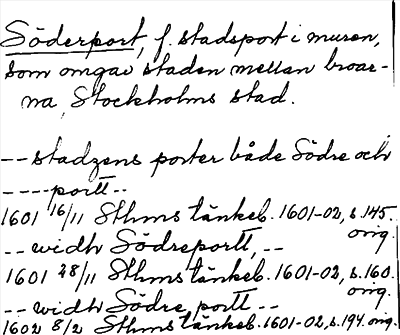 Söderport, f. stadsport i muren,
som omgav staden mellan broar-
na, Stockholms stad.
-- stadzens porter både Södre och
---- portt --
1601 16/11 Sthms tänkeb. 1601-02, s. 145.
orig.
-- widh Södreportt, --
1601 28/11 Sthms tänkeb. 1601-02, s. 160.
orig.
-- widh Södre portt --
1602 8/2 Sthms tänkeb. 1601-02, s. 194. orig.